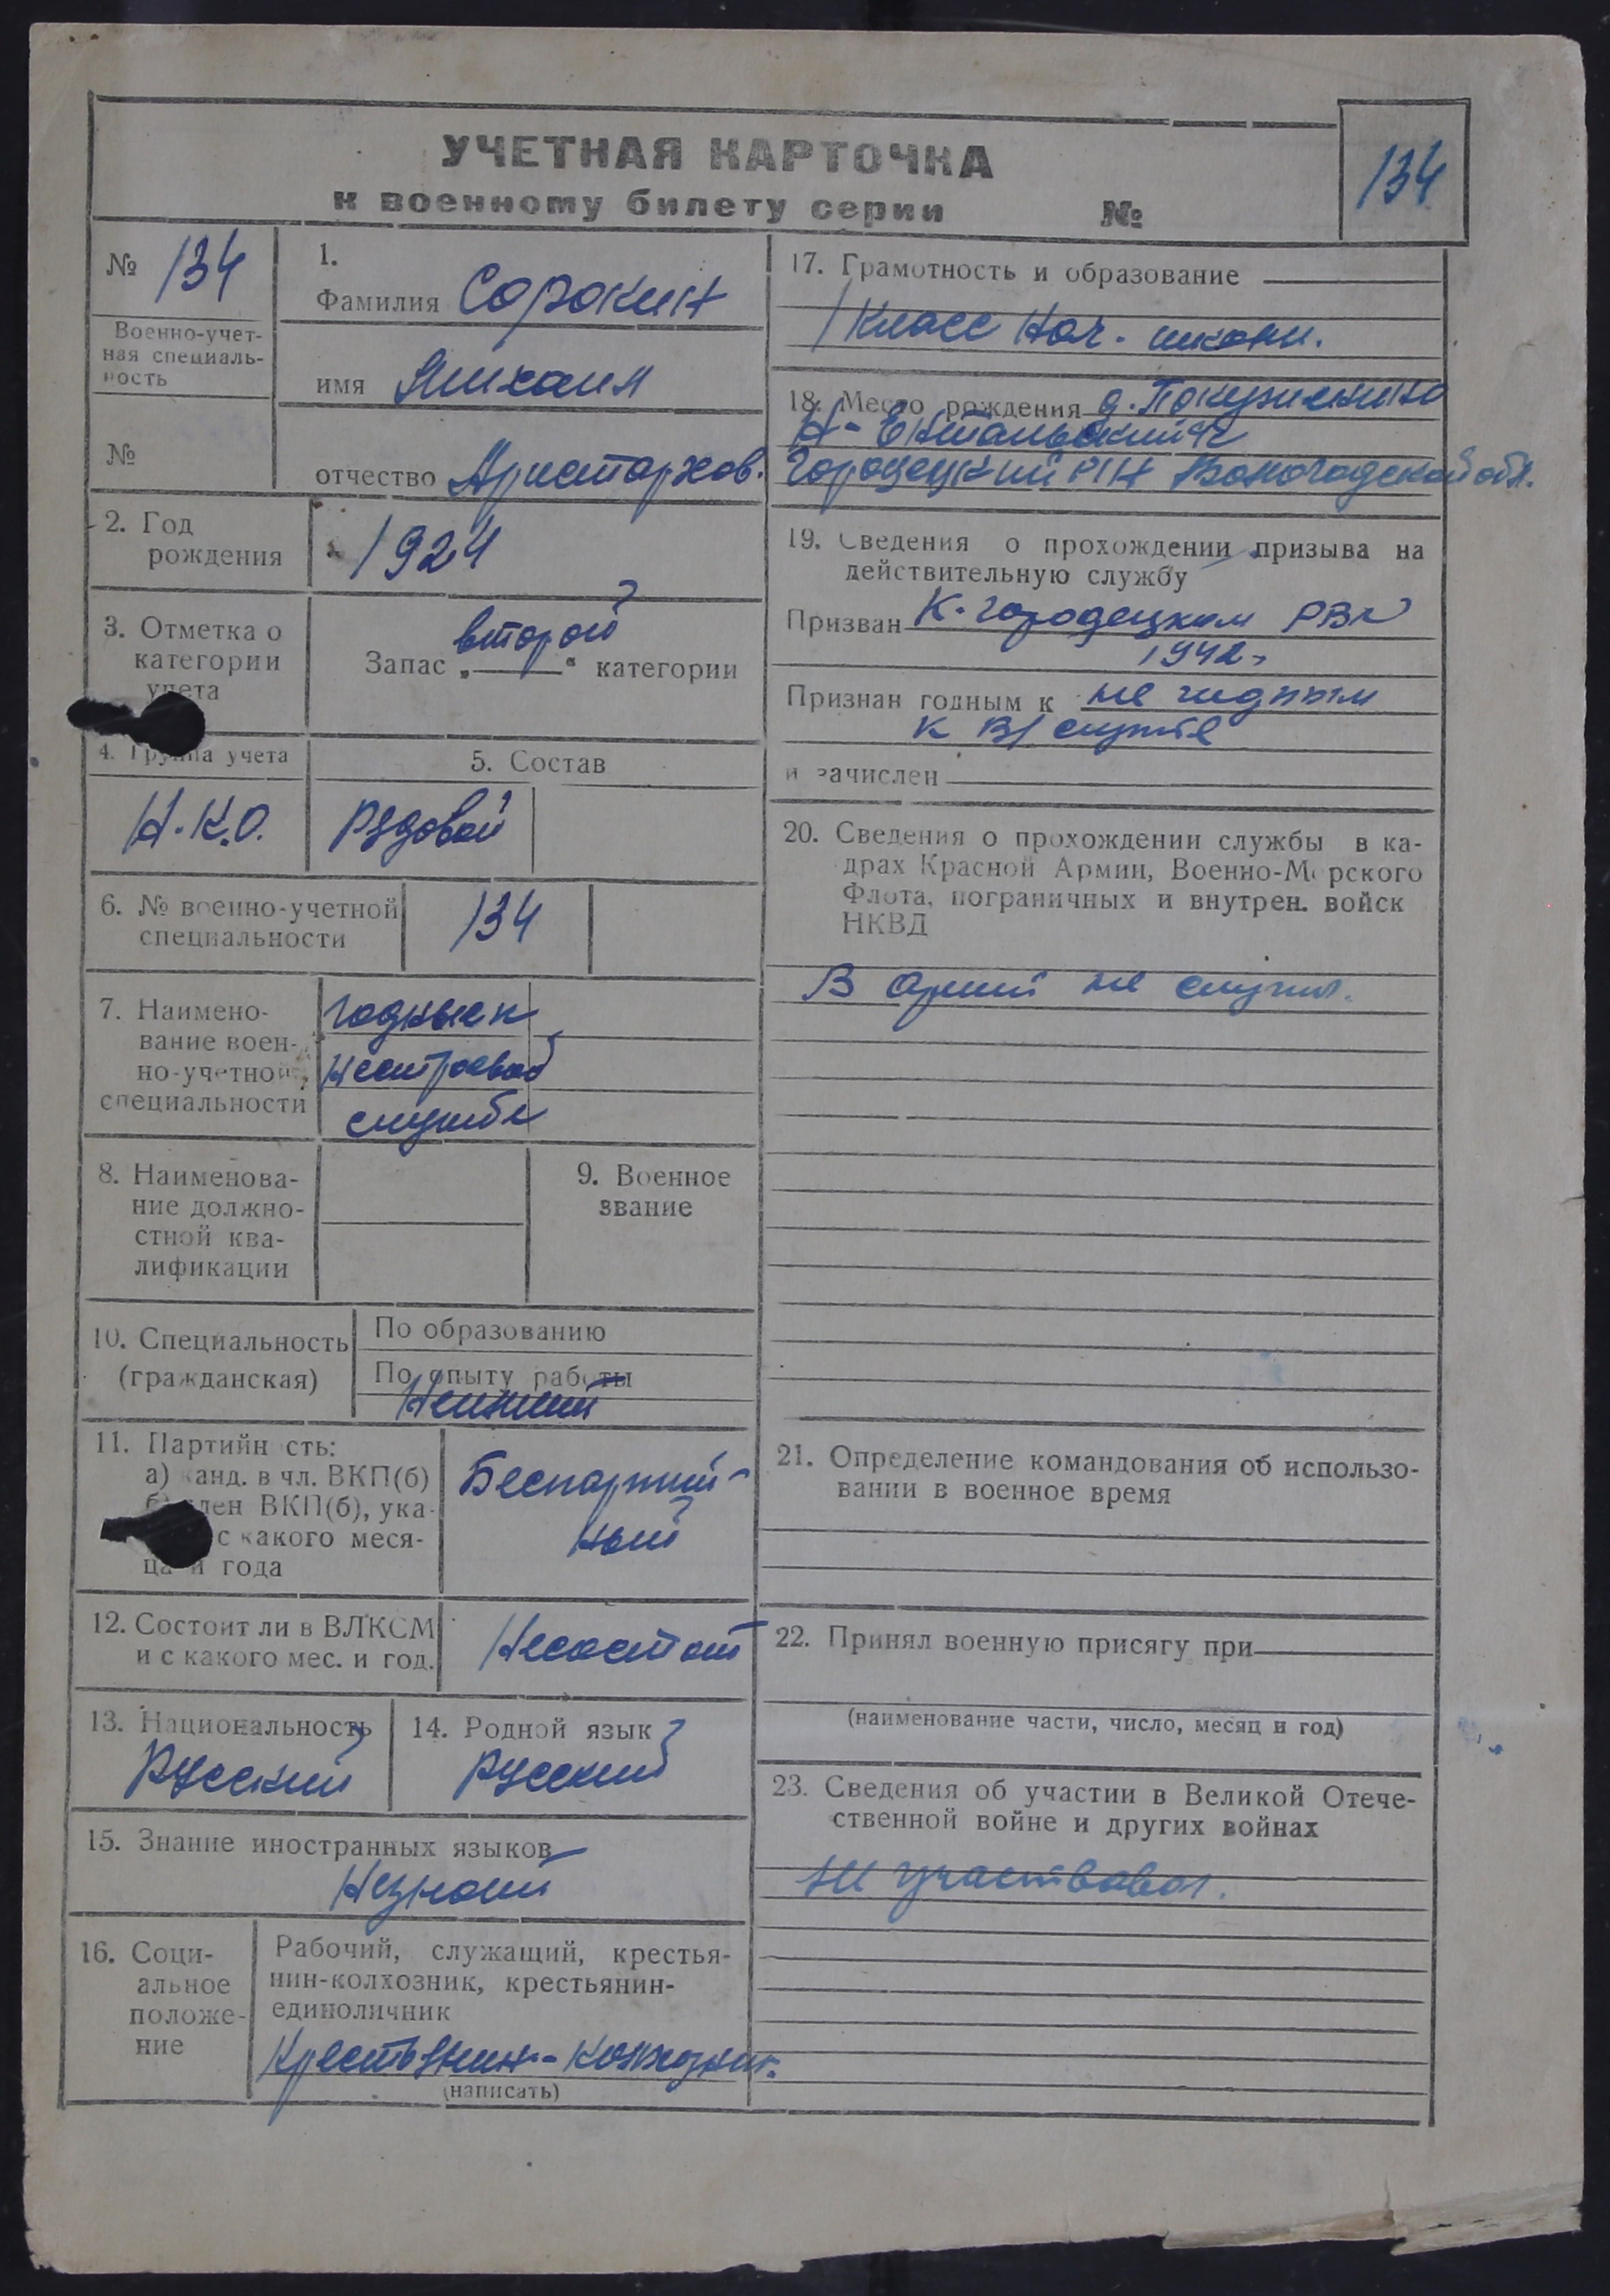 УЧЕТНАЯ КАРТОЧКА
к военному билету серии №
134
№ 134
Военно-учет-
ная специаль-
ность
№
1.
Фамилия Сорокин
имя Михаил
отчество Аристархов.
2. Год
рождения
1924
3. Отметка о
категории
учета
Запас „второй“ категории
4. Группа учета
Н.К.О.
5. Состав
Рядовой
6. № военно-учетной
специальности
134
7. Наимено-
вание воен-
но-учетной
специальности
годные к
нестроевой
службе
8. Наименова-
ние должно-
стной ква-
лификации
9. Военное
звание
10. Специальность
(гражданская)
По образованию
По опыту работы
11. Партийн сть:
а) канд. в чл. ВКП(б)
б) член ВКП(б), ука-
с какого меся-
ца и года
Беспартий-
ный
12. Состоит ли в ВЛКСМ
и с какого мес. и год.
Несостоит
13. Национальность
Русский
14. Родной язык
Русский
15. Знание иностранных языков
Незнает
16. Соци-
альное
положе-
ние
Рабочий, служащий, крестья-
нин-колхозник, крестьянин-
единоличник
Крестьянин-колхозник.
(написать)
17. Грамотность и образование
1 класс нач. школы.
18. Место рождения д.
Н-Ентальский с/с
Городецкий р/н Вологодской обл.
19. Сведения о прохождении призыва на
действительную службу
Призван К-Городецким РВК
1942г
Признан годным к не годным
к в/службе
и зачислен
20. Сведения о прохождении службы в ка-
драх Красной Армии, Военно-Морского
Флота, пограничных и внутрен. войск
НКВД
В армии не служил.
21. Определение командования об использо-
вании в военное время
22. Принял военную присягу при
(наименование части, число, месяц и год)
23. Сведения об участии в Великой Отече-
ственной войне и других войнах
не участвовал.